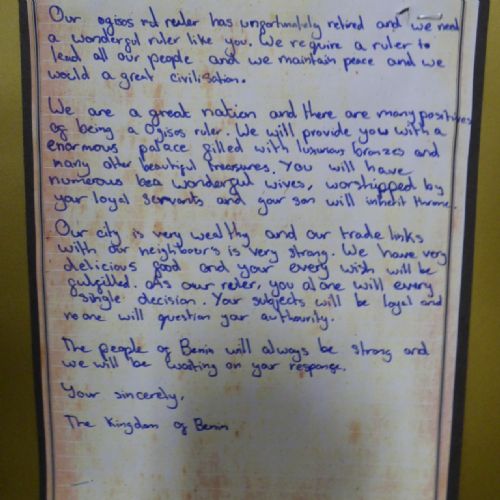 Our ogisos rd reuler has unfortunately retired and we need
a wonderful ruler like you. We require a ruler to
lead all our people and we maintain peace and we
would a great civilisation.
We are a great nation and there are many positives
of being a Ogisos ruler. We will provide you with a
enormous palace filled with luxurious bronzes and
many other beautiful treasures. You will have
numerous bea wonderful wives, worshipped by
your loyal servants and your son will inherit throne.
Our city is very wealthy and our trade links
with our neighbours is very strong. We have very
delicious food and your every wish will be
fulfilled. As our ruler, you alone will every
single decision. Your subjects will be loyal and
no one will question your authourity.
The people of Benin will always be strong and
we will be waiting on your response.
Your sincerely,
The Kingdom of Benin